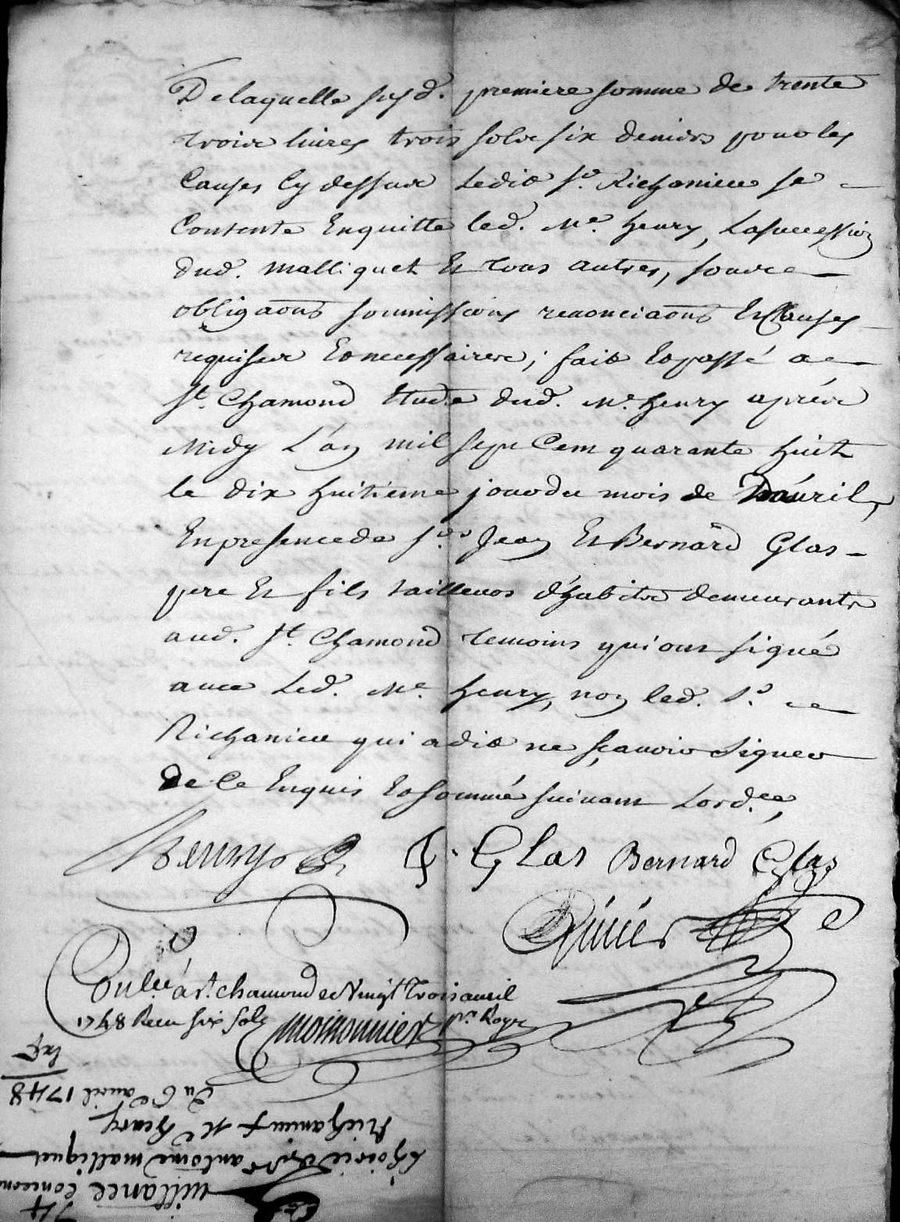 De laquelle susd. premiere somme de trente
trois livres trois sols six deniers pour les
Causes Cy dessus Ledit Sr. Richaniere se
Contente Enquitte led. Me. henry, La succession
dud. malliquet Et tous autres, sous
obligaons soumissions renonciaons Et Clauses
requises Et necessaires; fait Et passé a
St. Chamond Etude dud. Me. henry aprés
Midy L'an mil sept Cent quarante huit
le dix huitieme jour du mois de Dauril,
En presence de Srs. Jean Et Bernard Glas
pere Et fils tailleurs d'habits demeurants
aud. St. Chamond temoins qui ont signé
avec Led. Me. henry, non led. Sr.
Richaniere qui a dit ne sçavoir signer
de Ce Enquis Et sommé suivant Lordce,
henry J. Glas Bernard Glas
Conllé a St. chamond ce Vingt Trois avril
1748 Receu six sols
Du 6e avril 1748
Richanier & Me henry
antoine malliquet
quittance concern
74